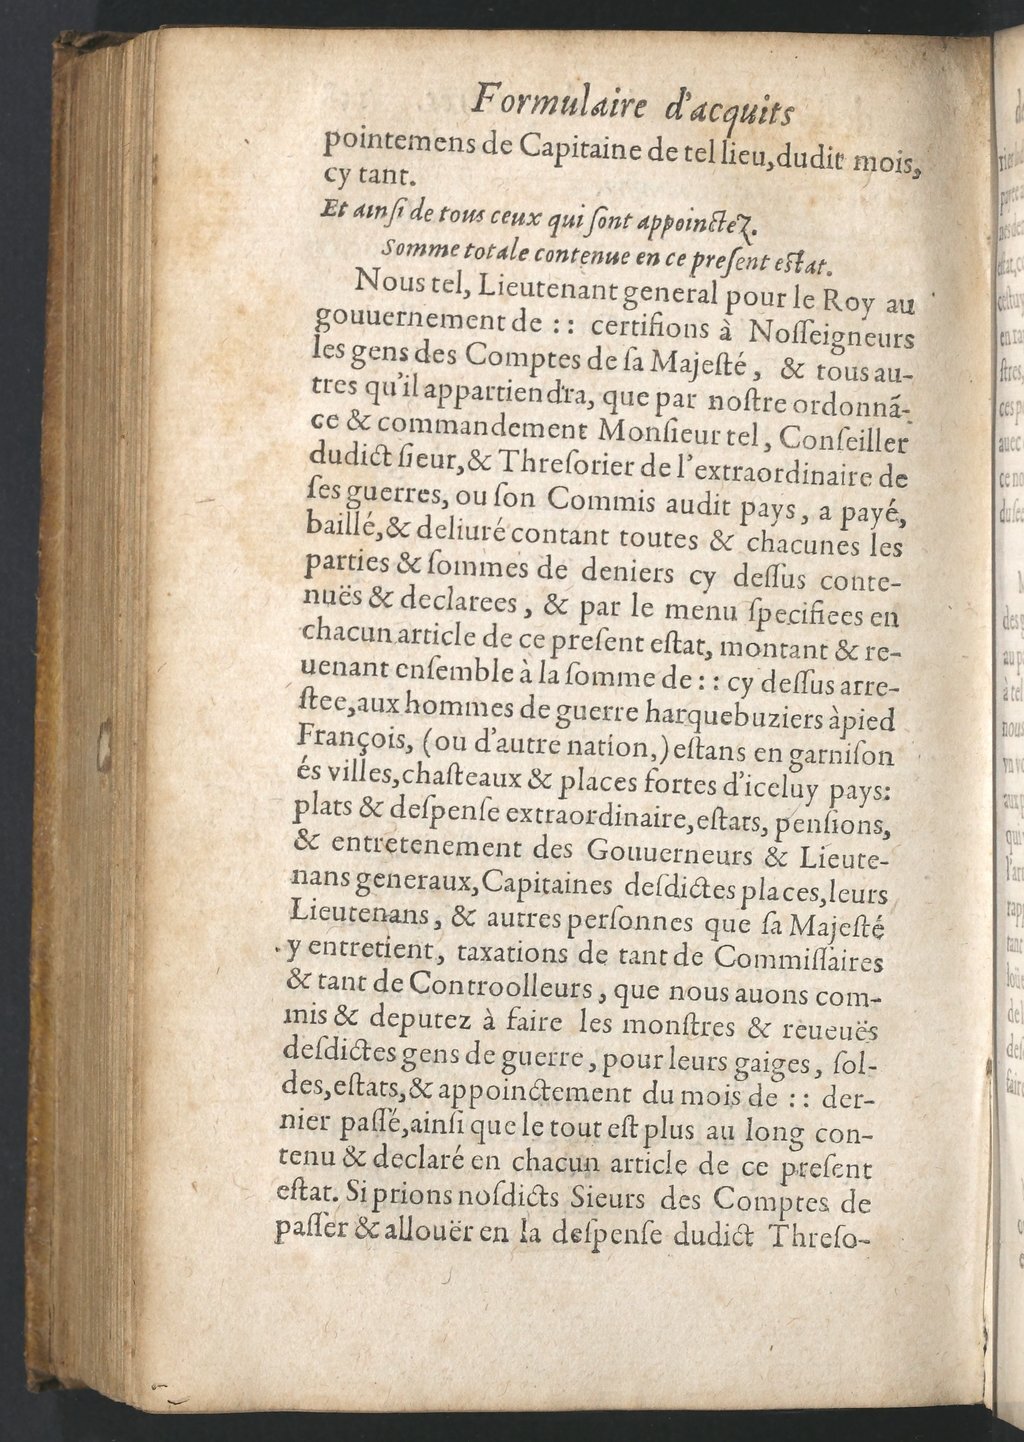 Formulaire d'acquits
pointemens de Capitaine de tel lieu, dudit mois,
cy tant.
Et ainſi de tous ceux qui ſont appoinctez.
Somme totale contenue en ce preſent eſtat.
Nous tel, Lieutenant general pour le Roy au
gouuernement de :: certifions à Noſſeigneurs
les gens des Comptes de ſa Majeſté, & tous au-
tres qu'il appartiendra, que par noſtre ordonnã-
ce & commandement Monſieur tel, Conſeiller
dudict ſieur, & Threſorier de l'extraordinaire de
ſes guerres, ou ſon Commis audit pays, a payé,
baillé, & deliuré contant toutes & chacunes les
parties & ſommes de deniers cy deſſus conte-
nuës & declarees, & par le menu ſpecifiees en
chacun article de ce preſent eſtat, montant & re-
uenant enſemble à la ſomme de :: cy deſſus arre-
ſtee, aux hommes de guerre harquebuziers àpied
François, (ou d'autre nation,) eſtans en garniſon
és villes, chaſteaux & places fortes d'iceluy pays:
plats & deſpenſe extraordinaire, eſtats, penſions,
& entretenement des Gouuerneurs & Lieute-
nans generaux, Capitaines deſdictes places, leurs
Lieutenans, & autres perſonnes que ſa Majeſté
y entretient, taxations de tant de Commiſſaires
& tant de Controolleurs, que nous auons com-
mis & deputez à faire les monſtres & reueuës
deſdictes gens de guerre, pour leurs gaiges, ſol-
des, eſtats, & appoinctement du mois de :: der-
nier paſſé, ainſi que le tout eſt plus au long con-
tenu & declaré en chacun article de ce preſent
eſtat. Si prions noſdicts Sieurs des Comptes de
paſſer & allouër en la deſpenſe dudict Threſo-